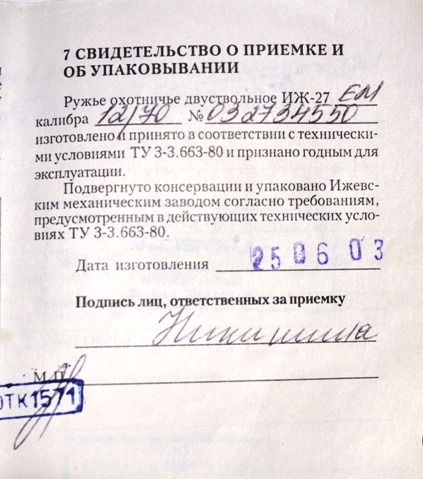 7 СВИДЕТЕЛЬСТВО О ПРИЕМКЕ И
ОБ УПАКОВЫВАНИИ
Ружье охотничье двуствольное ИЖ-27 ЕМ
калибра 12/70 № 032734550
изготовлено и принято в соответствии с технически-
ми условиями ТУ 3-3.663-80 и признано годным для
эксплуатации.
Подвергнуто консервации и упаковано Ижевс-
ким механическим заводом согласно требованиям,
предусмотренным в действующих технических усло-
виях ТУ 3-3.663-80.
Дата изготовления 250603
Подпись лиц, ответственных за приемку
М.П.
ОТК1571